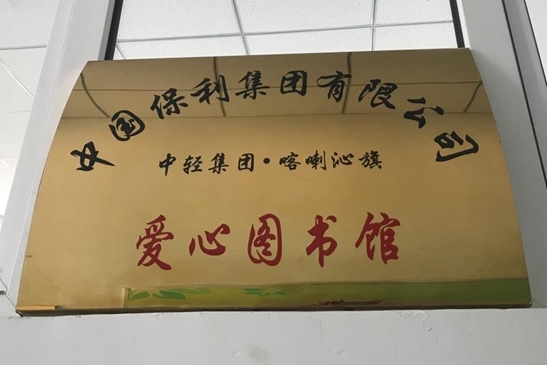 中国保利集团有限公司
中轻集团·喀喇沁旗
爱心图书馆